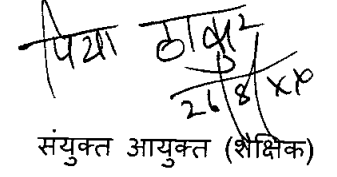 पिया ठाकुर
26/8/xx
संयुक्त आयुक्त (शैक्षिक)